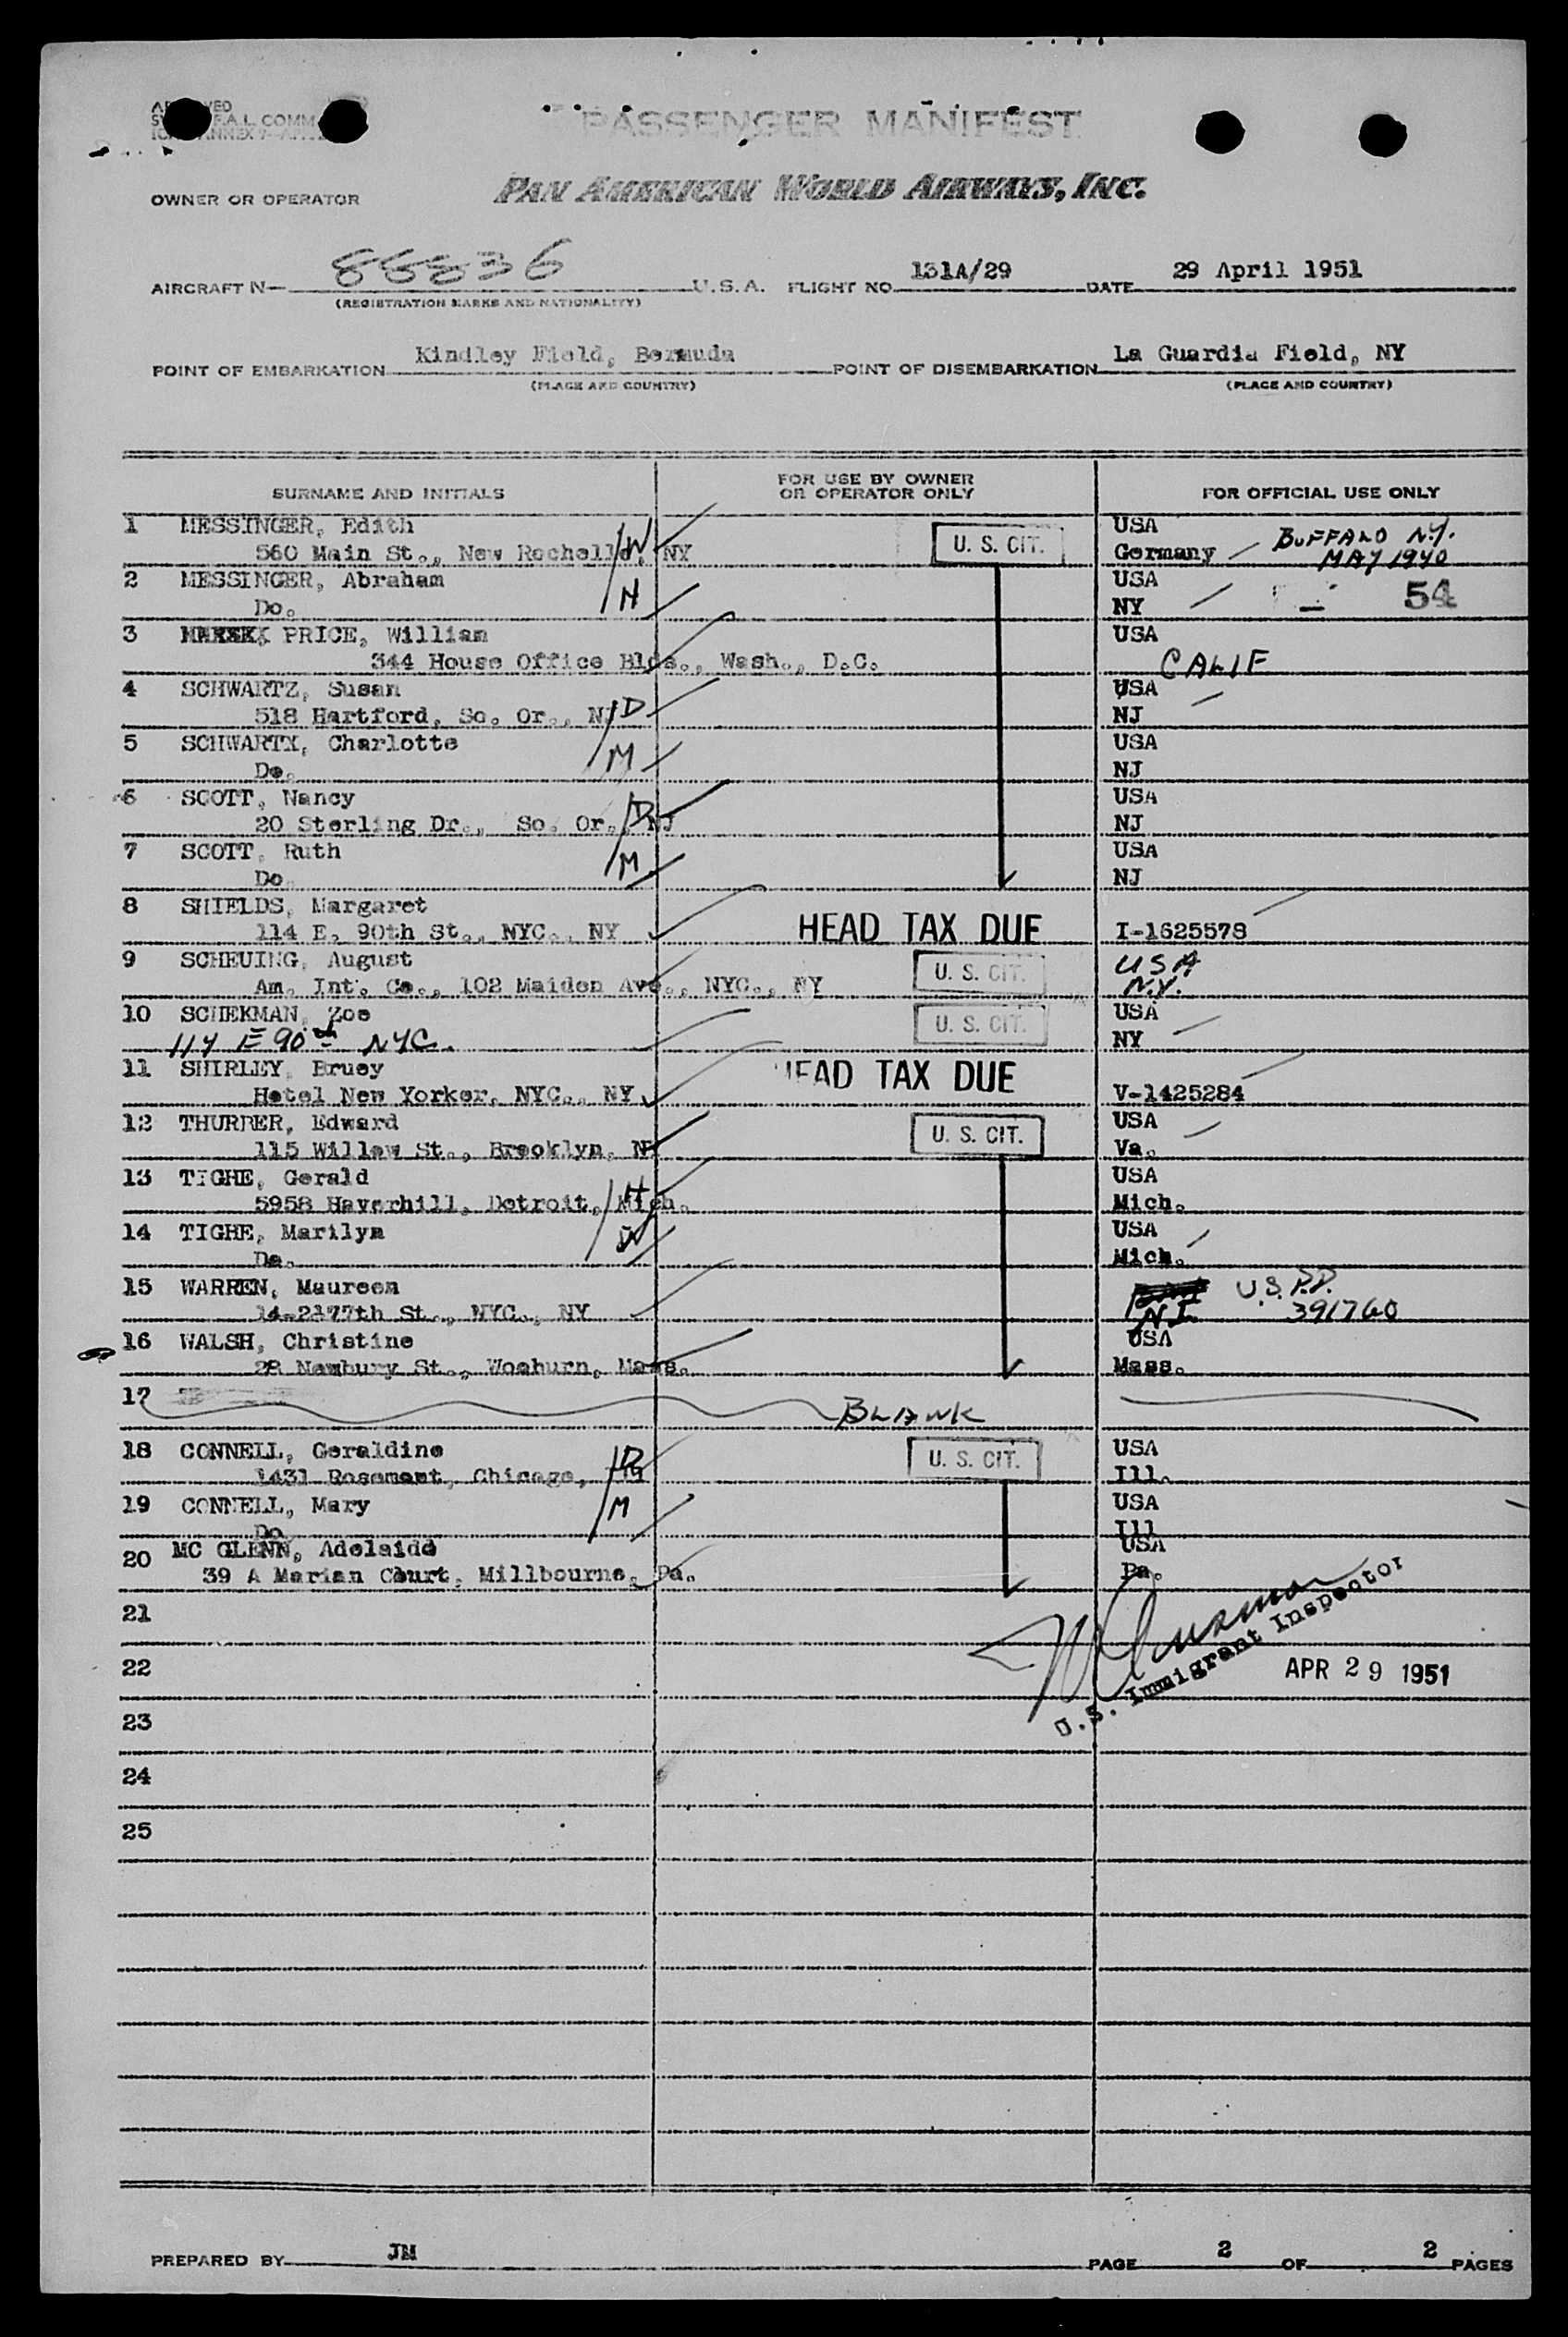 PASSENGER MANIFEST
OWNER OR OPERATOR PAN AMERICAN WORLD AIRWAYS, INC.
AIRCRAFT N— 88836 U.S.A. FLIGHT NO. 131A/29 DATE 29 April 1951
(REGISTRATION MARKS AND NATIONALITY)
POINT OF EMBARKATION Kindley Field, Bermuda POINT OF DISEMBARKATION La Guardia Field, NY
(PLACE AND COUNTRY) (PLACE AND COUNTRY)
SURNAME AND INITIALS FOR USE BY OWNER OR OPERATOR ONLY FOR OFFICIAL USE ONLY
1 MESSINGER, Edith USA BUFFALO N.Y.
560 Main St., New Rochelle, NY W U. S. CIT. Germany MAY 1940
2 MESSINGER, Abraham USA
Do. H NY 54
3 PRICE, William USA
344 House Office Bldg., Wash., D.C. CALIF
4 SCHWARTZ, Susan USA
518 Hartford, So. Or., NJ D NJ
5 SCHWARTX, Charlotte USA
Do. M NJ
6 SCOTT, Nancy USA
20 Sterling Dr., So. Or., NJ D NJ
7 SCOTT, Ruth USA
Do M NJ
8 SHIELDS, Margaret
114 E. 90th St., NYC., NY HEAD TAX DUE I-1625578
9 SCHEUING, August U. S. CIT. USA
Am. Int. Co., 102 Maiden Ave., NYC., NY N.Y.
10 SCHEKMAN, Zoe U. S. CIT. USA
114 E 90th NYC. NY
11 SHIRLEY, Bruey HEAD TAX DUE
Hotel New Yorker, NYC., NY V-1425284
12 THURRER, Edward U. S. CIT. USA
115 Willow St., Brooklyn, NY Va.
13 TIGHE, Gerald USA
5958 Haverhill, Detroit, Mich. H Mich.
14 TIGHE, Marilyn USA
Do. W Mich.
15 WARREN, Maureen U.S. P.P.
14-2177th St., NYC., NY N.Y. 391760
16 WALSH, Christine USA
28 Newbury St., Woburn, Mass. Mass.
17 BLANK
18 CONNELL, Geraldine U. S. CIT. USA
1431 Rosemont, Chicago, D Ill.
19 CONNELL, Mary USA
Do M Ill
20 MC GLENN, Adelaide USA
39 A Marian Court, Millbourne, Pa. Pa.
21
U.S. Immigrant Inspector
22 APR 29 1951
23
24
25
PREPARED BY JM PAGE 2 OF 2 PAGES